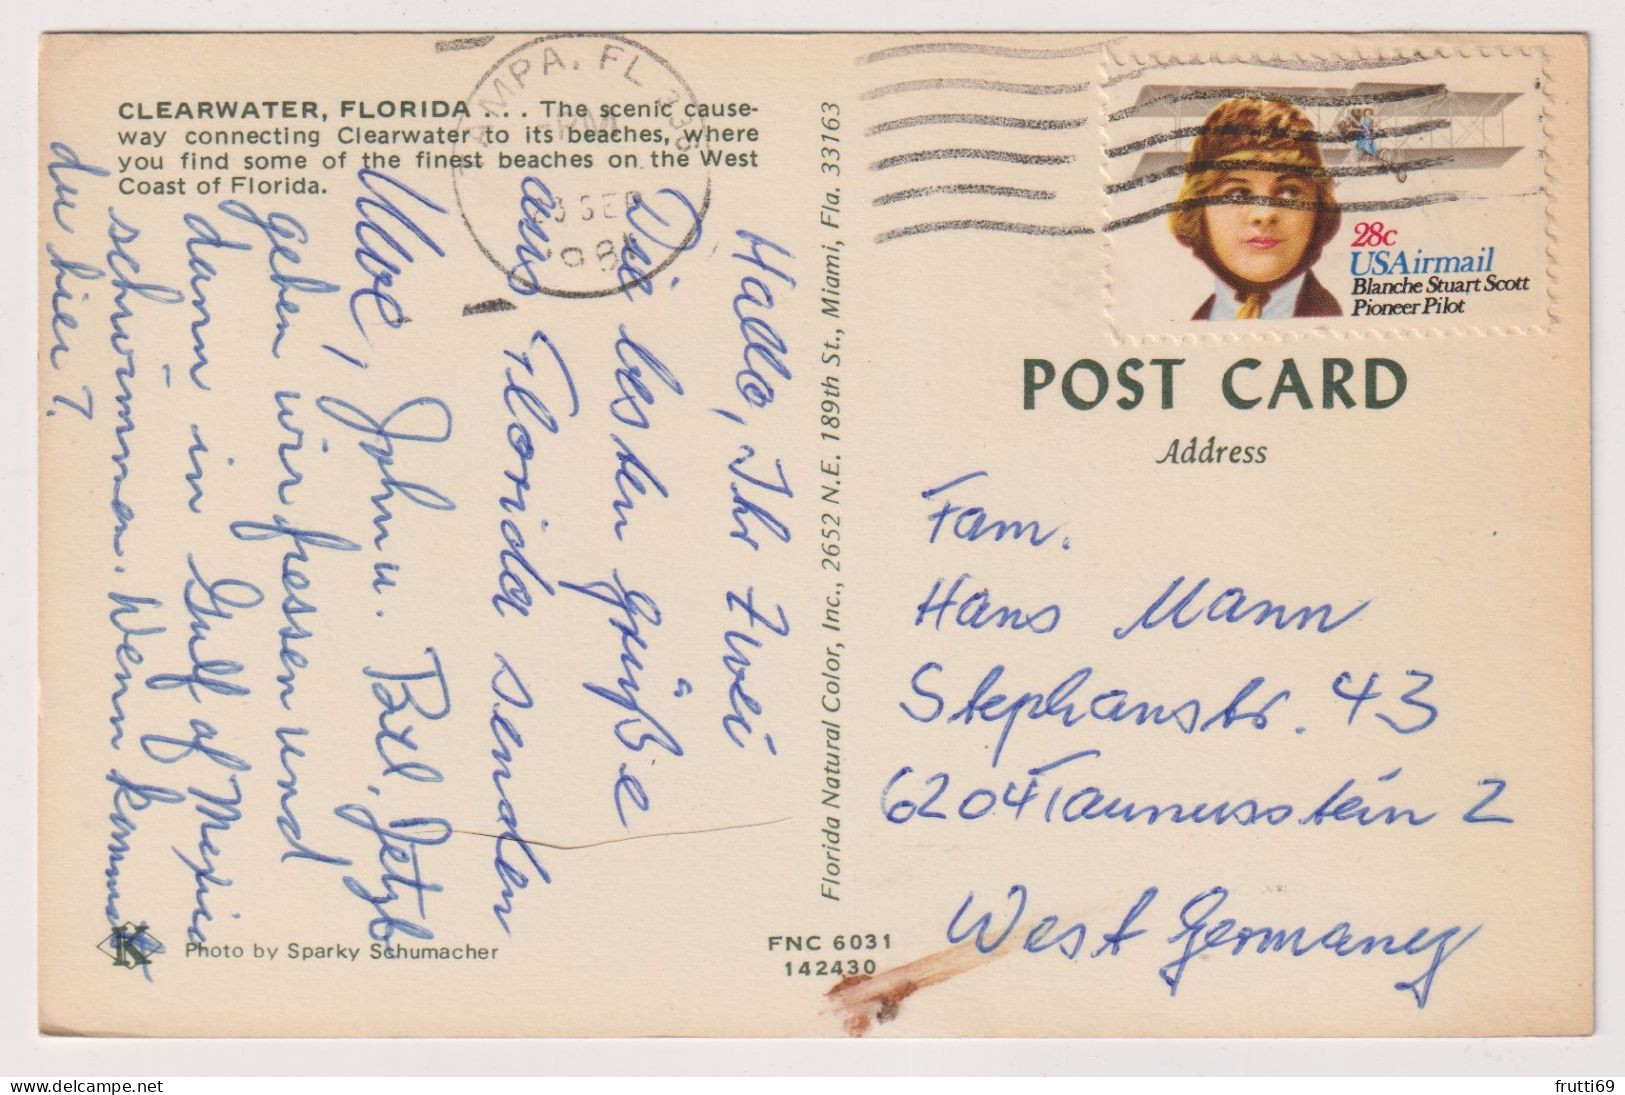 CLEARWATER, FLORIDA ... The scenic cause-
way connecting Clearwater to its beaches, where
you find some of the finest beaches on the West
Coast of Florida.
TAMPA, FL 336
PM
SEP
Hallo, Ihr zwei
Die besten Grüße
aus Florida senden
Uwe, John u. Bxl. Jetzt
gehen wir fressen und
dann in Gulf of Mexico
schwimmen. Wenn kommst
du hier?
Photo by Sparky Schumacher
K
FNC 6031
142430
Florida Natural Color, Inc., 2652 N.E. 189th St., Miami, Fla. 33163
28c
USAirmail
Blanche Stuart Scott
Pioneer Pilot
POST CARD
Address
Fam.
Hans Mann
Stephanstr. 43
6204 Taunusstein 2
West Germaney
frutti69